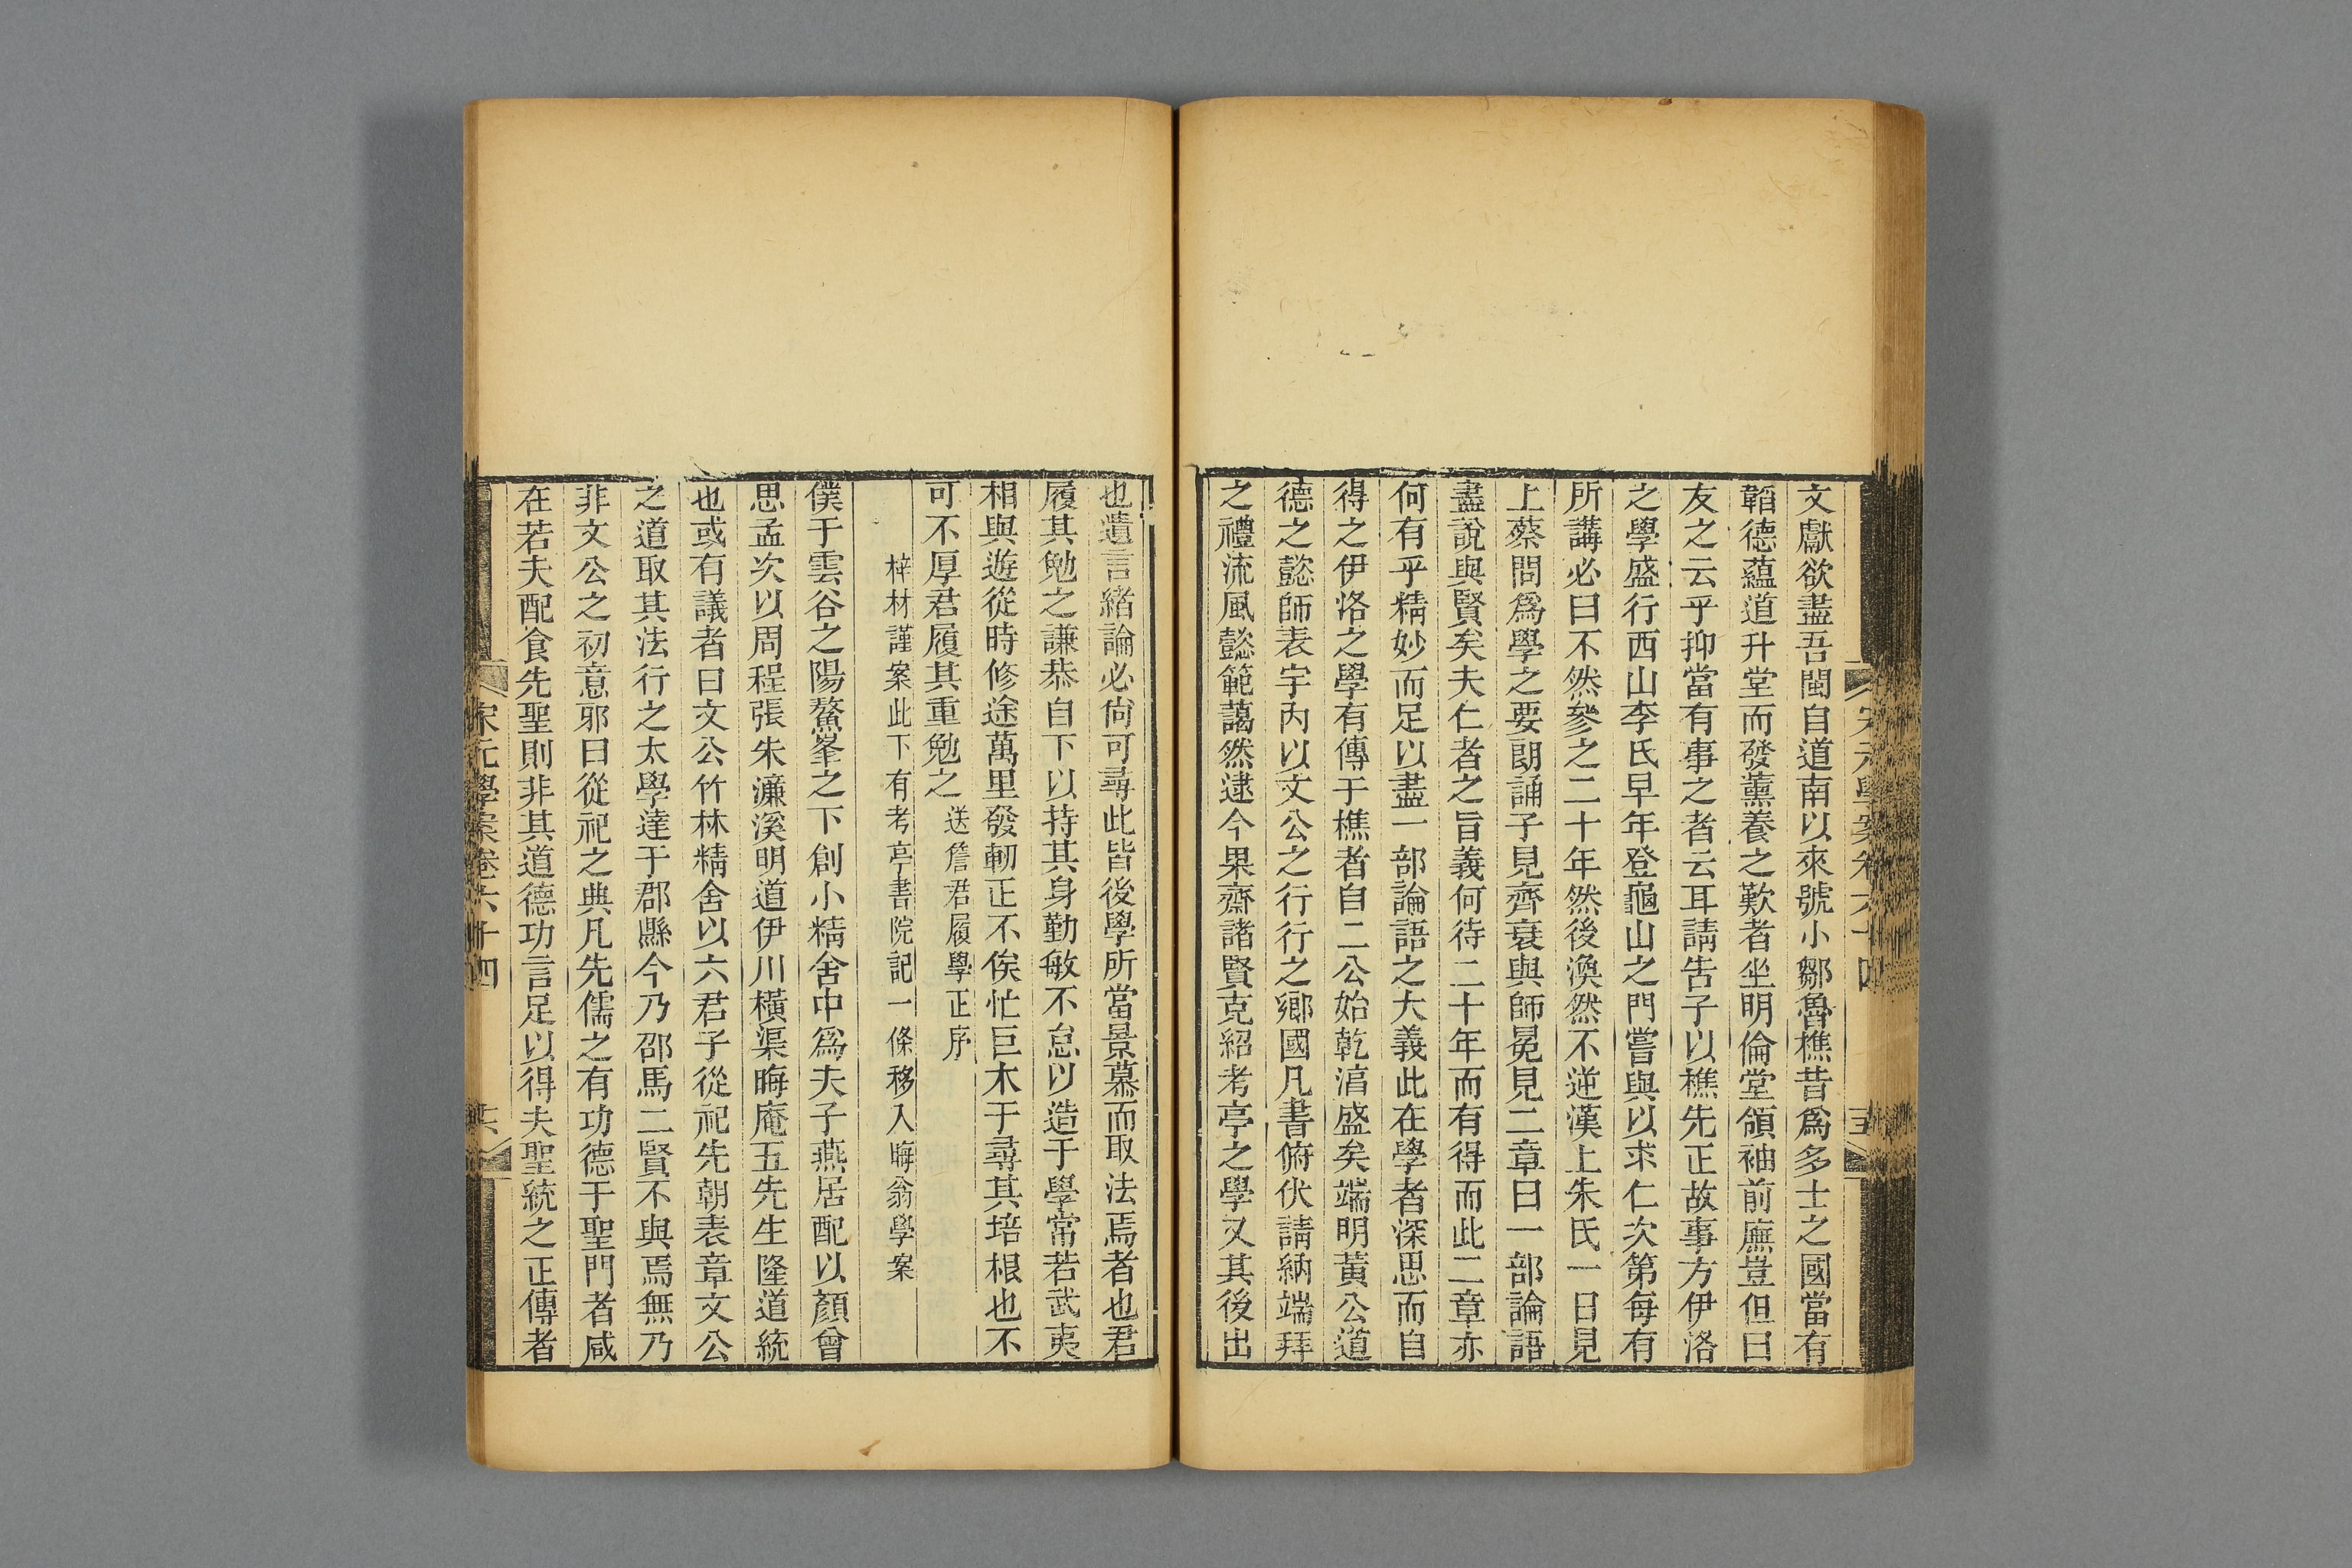 文獻欲盡吾閩自道南以來號小鄒魯樵昔爲多士之國當有
韜德蘊道升堂而發薰養之歎者坐明倫堂領袖前廡豈但曰
友之云乎抑當有事之者云耳請吿子以樵先正故事方伊洛
之學盛行西山李氏早年登龜山之門嘗與以求仁次第每有
所講必曰不然參之二十年然後渙然不逆漢上朱氏一日見
上蔡問爲學之要朗誦子見齊衰與師冕見二章曰一部論語
盡說與賢矣夫仁者之旨義何待二十年而有得而此二章亦
何有乎精妙而足以盡一部論語之大義此在學者深思而自
得之伊洛之學有傳于樵者自二公始乾淳盛矣端明黃公道
德之懿師表宇內以文公之行行之鄉國凡書俯伏請納端拜
之禮流風懿範藹然逮今果齋諸賢克紹考亭之學又其後出
也遺言緖論必尙可尋此皆後學所當景慕而取法焉者也君
履其勉之謙恭自下以持其身勤敏不怠以造于學常若武夷
相與遊從時修途萬里發軔正不俟忙巨木于尋其培根也不
可不厚君履其重勉之送詹君履學正序
梓材謹案此下有考亭書院記一條移入晦翁學案
僕于雲谷之陽鰲峯之下創小精舍中爲夫子燕居配以顏曾
思孟次以周程張朱濂溪明道伊川橫渠晦庵五先生隆道統
也或有議者曰文公竹林精舍以六君子從祀先朝表章文公
之道取其法行之太學達于郡縣今乃邵馬二賢不與焉無乃
非文公之初意邪曰從祀之典凡先儒之有功德于聖門者咸
在若夫配食先聖則非其道德功言足以得夫聖統之正傳者
宋元學案卷六十四